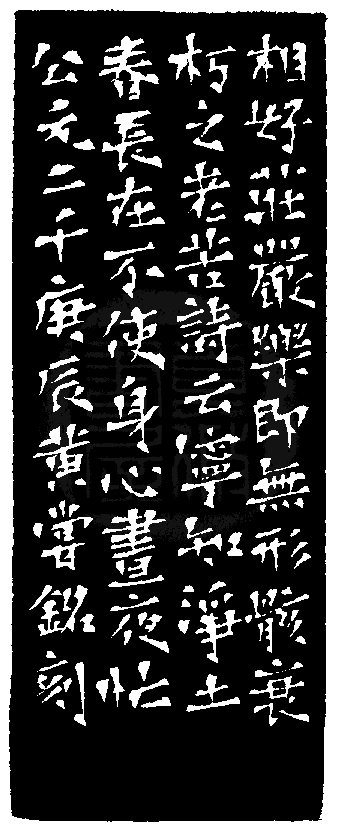 相好莊嚴樂即無形骸衰
朽之老苦詩云寧知淨土
春長在不使身心晝夜忙
公元二千庚辰黃嘗銘刻